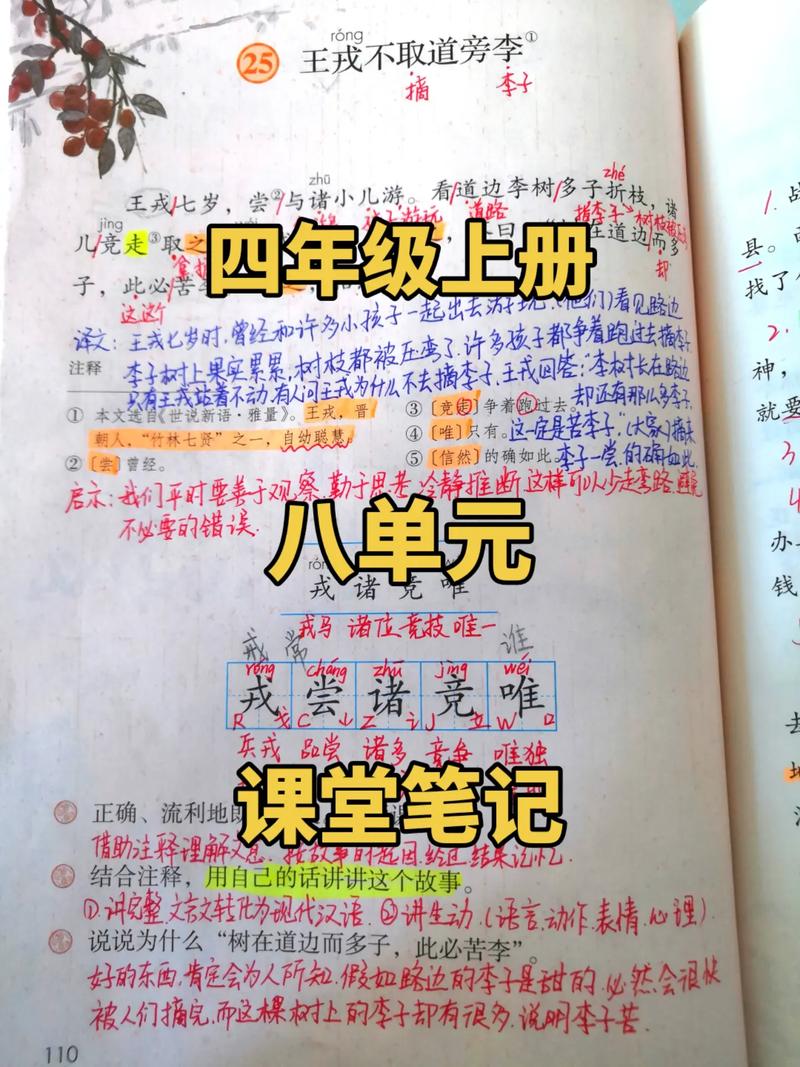 róng
25 王戎不取道旁李①
摘 李子
zhū zhé
王戎/七岁，尝②/与诸小儿游。看/道边李树/多子折枝，诸
jìng
道路 摘李子
儿/竞走③取之
曰 在道边/而多
却
子，此必苦
这 这个
四年级上册
译文：王戎七岁时，曾经和许多小孩子一起出去游玩，(他们)看见路边
注释
李子树上果实累累，树枝都被压弯了，许多孩子都争着跑过去摘李子，
只有王戎站着不动，有人问王戎为什么不去摘李子，王戎回答："李树长在路边
却还有那么多李子，
① 本文选自《世说新语·雅量》。王戎，晋
朝人，“竹林七贤”之一，自幼聪慧。
② [尝]曾经。
③ [竞走]争着跑过去。
④ [唯]只有。
这一定是苦李子。"(大家)摘来
⑤ [信然]的确如此。
李子一尝，的确如此。
启示：我们平时要善于观察，勤于思考，冷静推断，这样可以少走弯路，避免
不必要的错误。
八单元
戎 诸 竞 唯
戎马 诸位 竞技 唯一
戒 常 谁
róng cháng zhū jìng wéi
戎 尝 诸 竞 唯
R 戈 C 小 Z 讠 J 立 W 口
兵戎 品尝 诸多 竞争 唯独
课堂笔记
正确、流利地朗
借助注释理解文意，按故事的起因、经过、结果记忆。
结合注释，用自己的话讲讲这个故事。
①讲完整，文言文转化为现代汉语 ②讲生动（语言、动作、表情、心理）
说说为什么“树在道边而多子，此必苦李”。
好的东西，肯定会为人所知，假如路边的李子是甜的，必然会很快
被人们摘完，而这棵树上的李子却有很多，说明李子苦。
110
1.
县。
找了
2.
神，
就要
3
4
办
钱